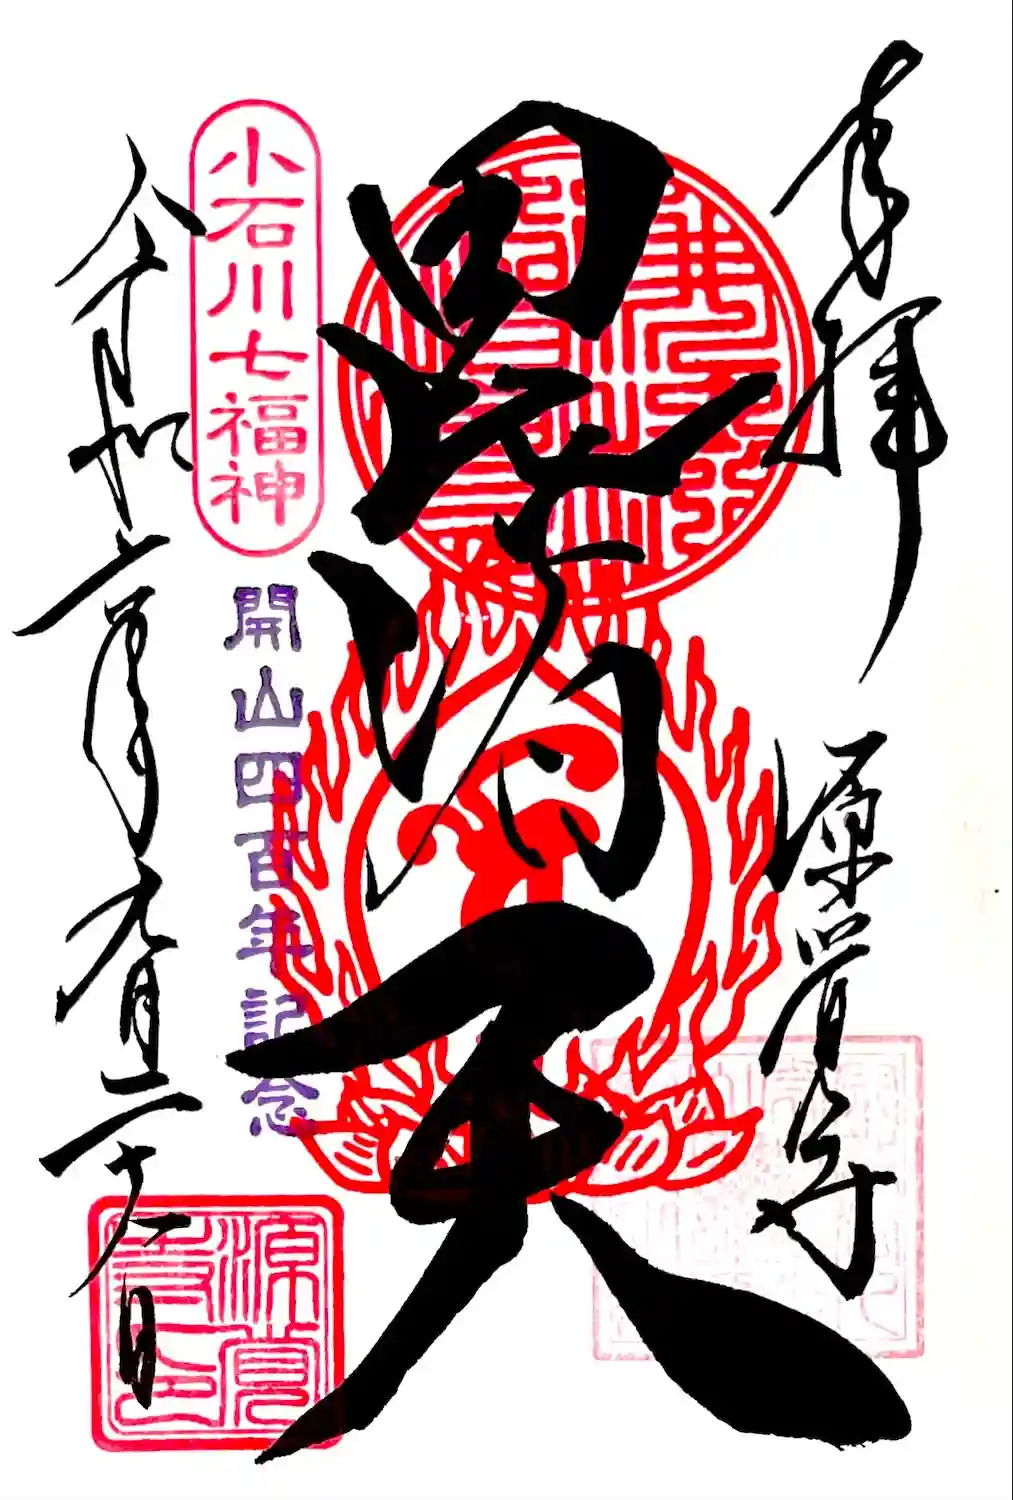 奉拝
源覚寺
毘沙門天
小石川七福神
開山四百年記念
令和六年九月二十一日
源覚
寺印